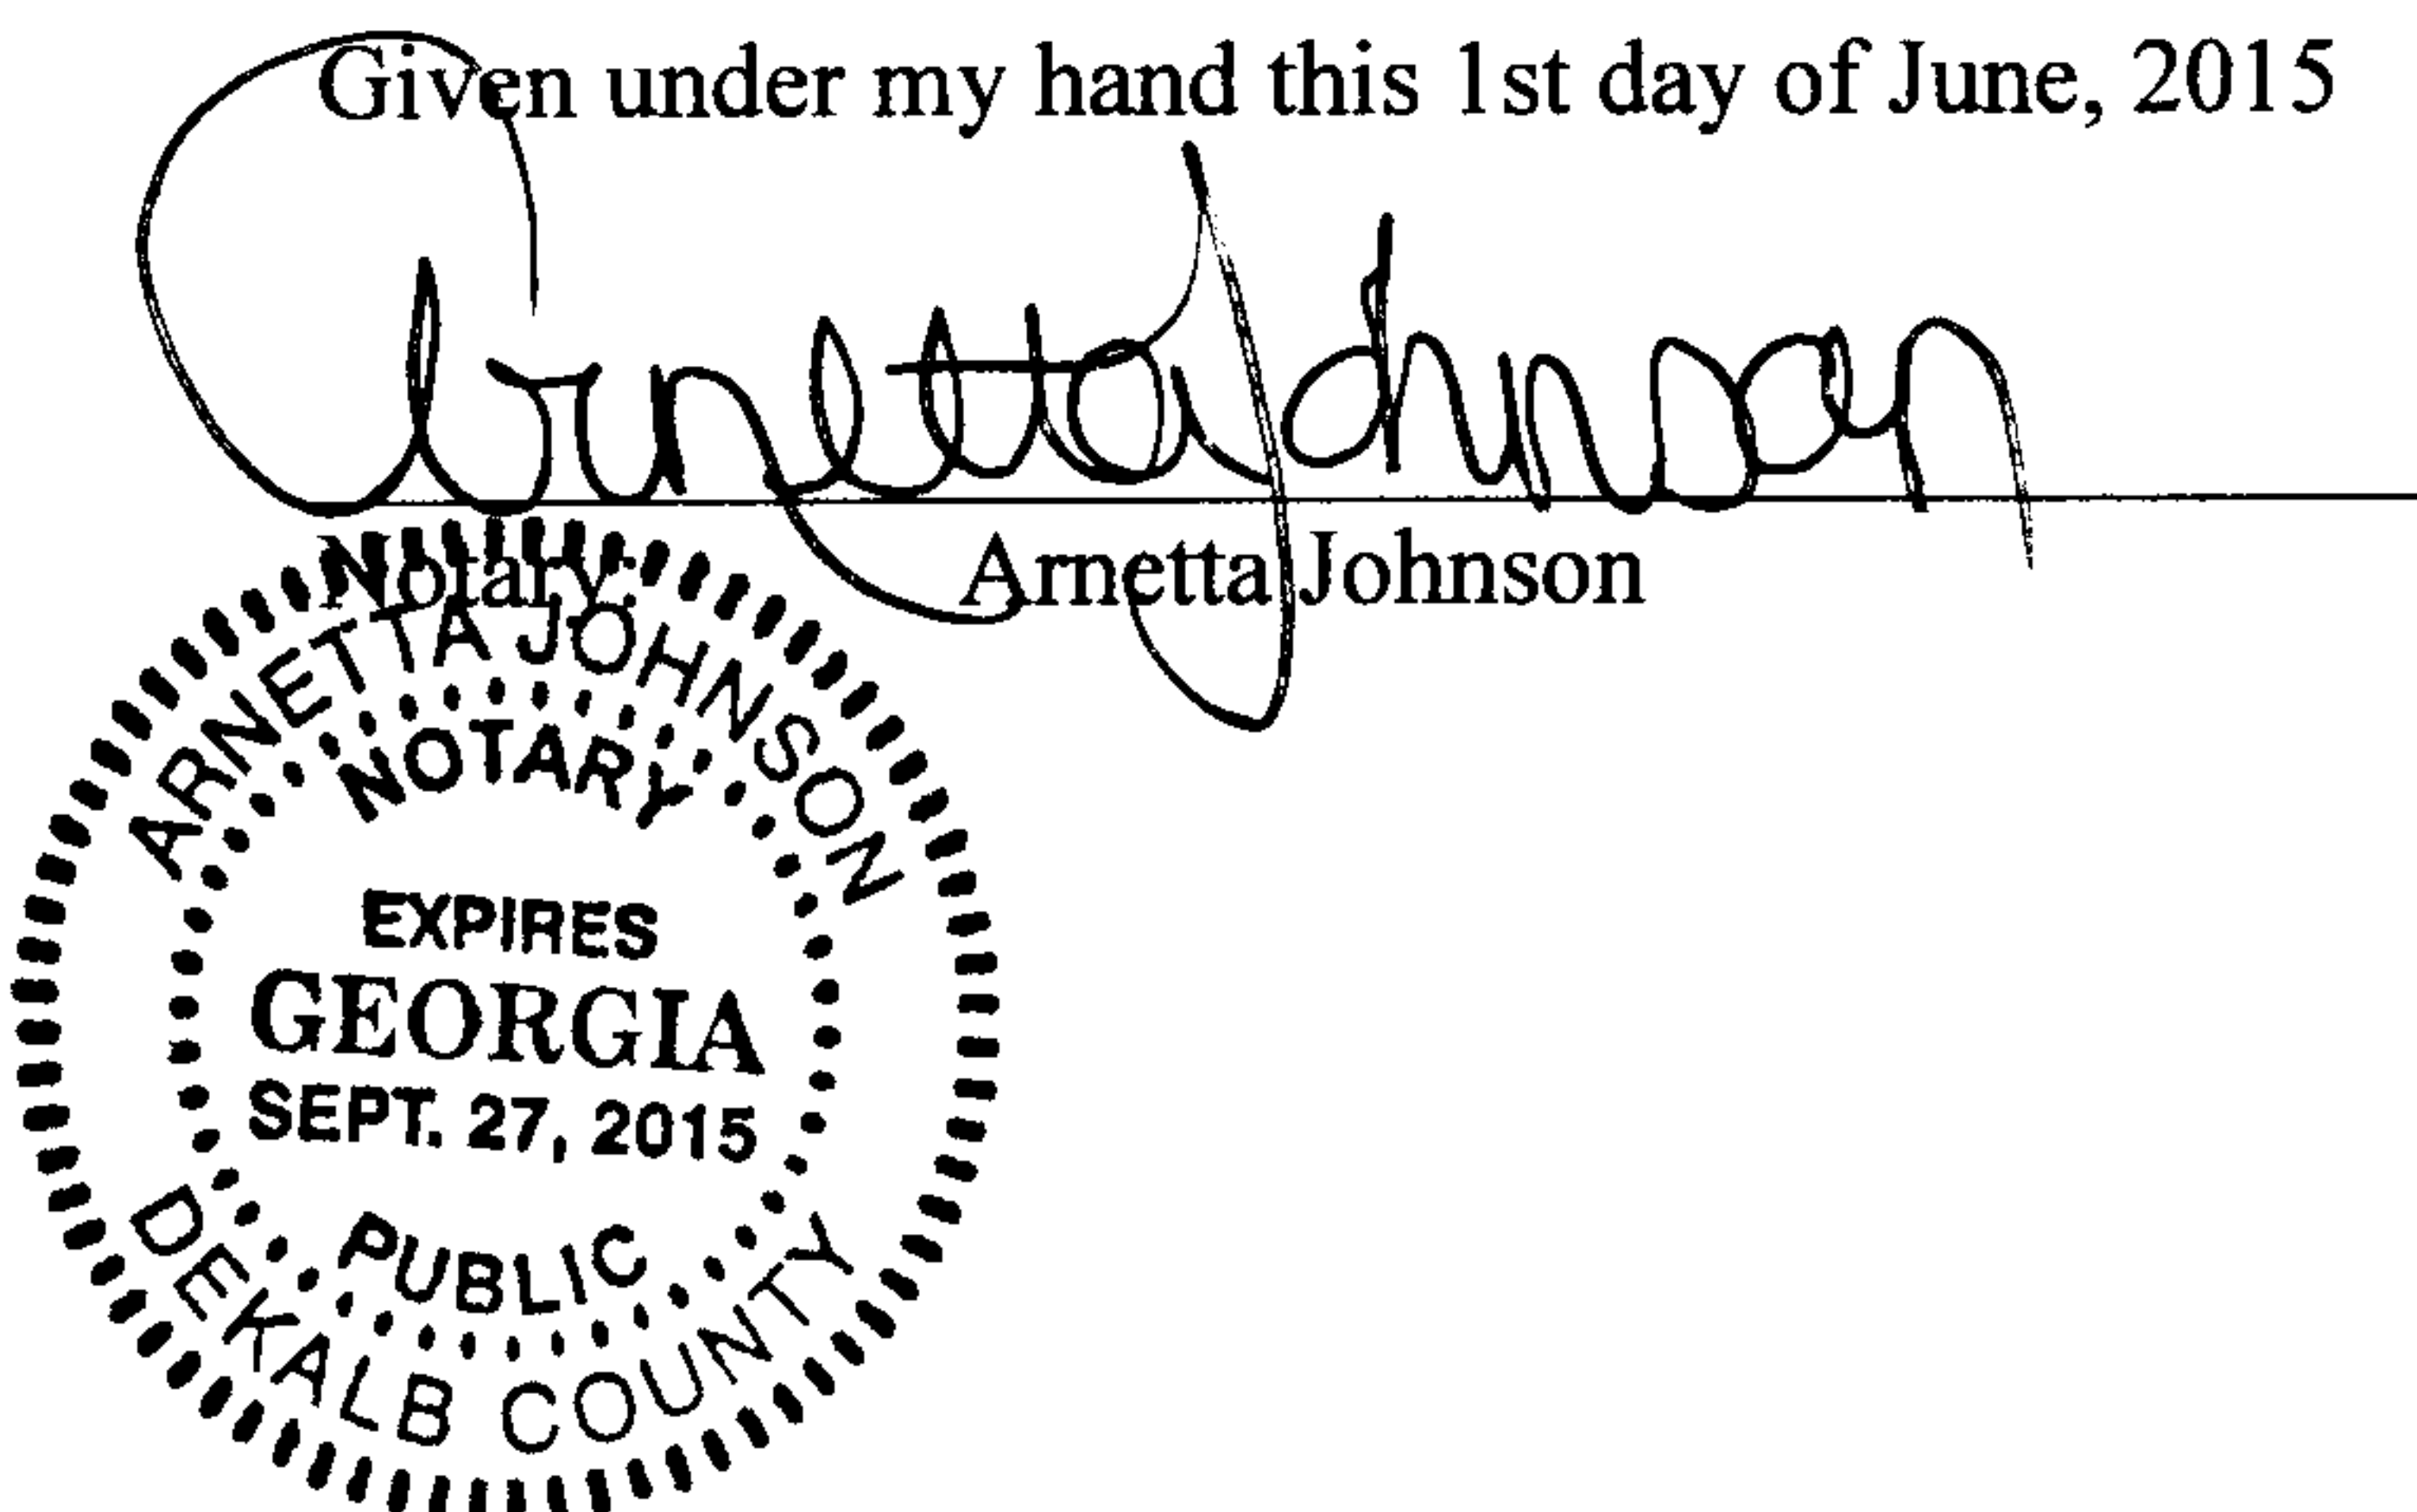 Given under my hand this 1st day of June, 2015
Arnetta Johnson
Notary: Arnetta Johnson
ARNETTA JOHNSON
NOTARY
EXPIRES
GEORGIA
SEPT. 27, 2015
PUBLIC
DEKALB COUNTY